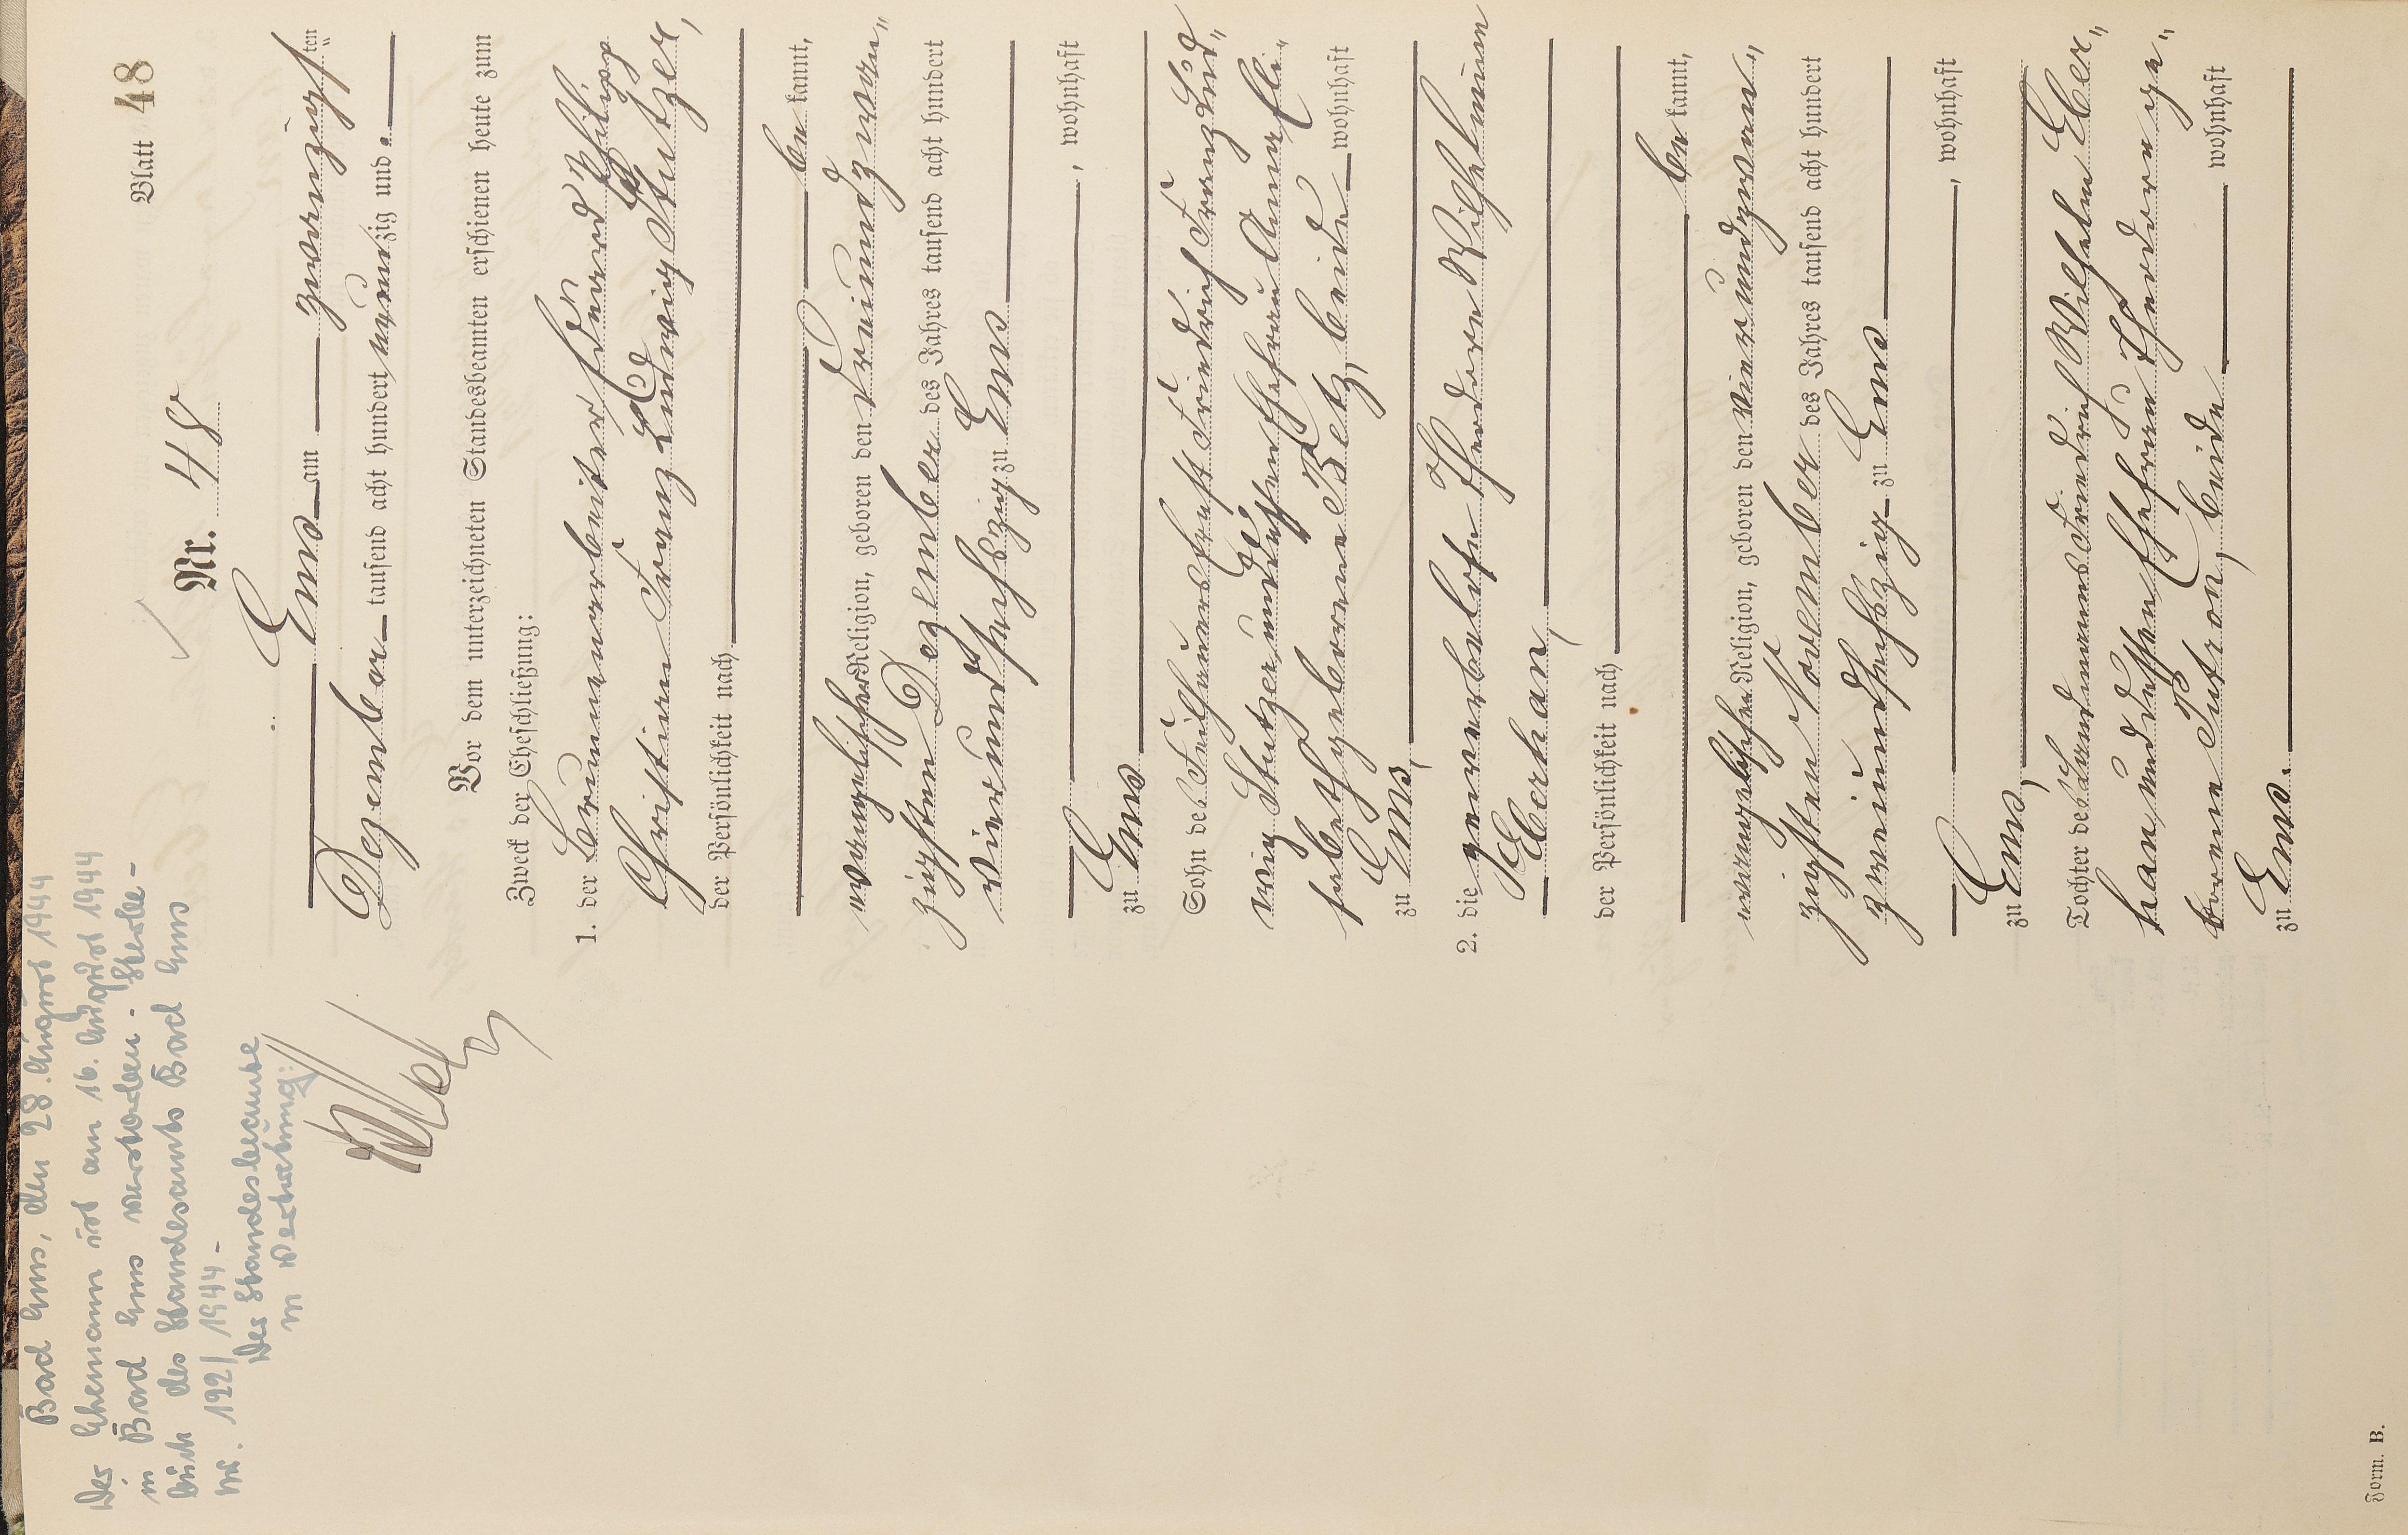 Blatt 48
Nr. 48
Ems am zwanzigsten
Dezember tausend acht hundert neunzig und
Vor dem unterzeichneten Standesbeamten erschienen heute zum
Zweck der Eheschließung:
1. der Brunnenarbeiter Eduard Philipp
Christian Franz Ludwig Stutzer,
der Persönlichkeit nach
be kannt,
evangelischer Religion, geboren den dreiundzwan-
zigsten Dezember des Jahres tausend acht hundert
vierundsechszig zu Ems
, wohnhaft
zu Ems
Sohn des Friedrich Franz Lud-
wig Stutzer und dessen Ehefrau Anna Eli-
sabeth geborene Betz, beide wohnhaft
zu Ems,
2. die gewerbelose Theodore Wilhelmine
Eberhan,
der Persönlichkeit nach
be kannt,
evangelischer Religion, geboren den vierundzwan-
zigsten November des Jahres tausend acht hundert
zweiundsechszig zu Ems
, wohnhaft
zu Ems,
Tochter des Friedrich Wilhelm Eber-
han und dessen Ehefrau Theodore ge-
borene Putron, beide wohnhaft
zu Ems.
Bad Ems, den 28. August 1944
Der Ehemann ist am 16. August 1944
in Bad Ems verstorben. Sterbe-
buch des Standesamts Bad Ems
Nr. 122/1944.
Der Standesbeamte
in Vertretung:
Form. B.